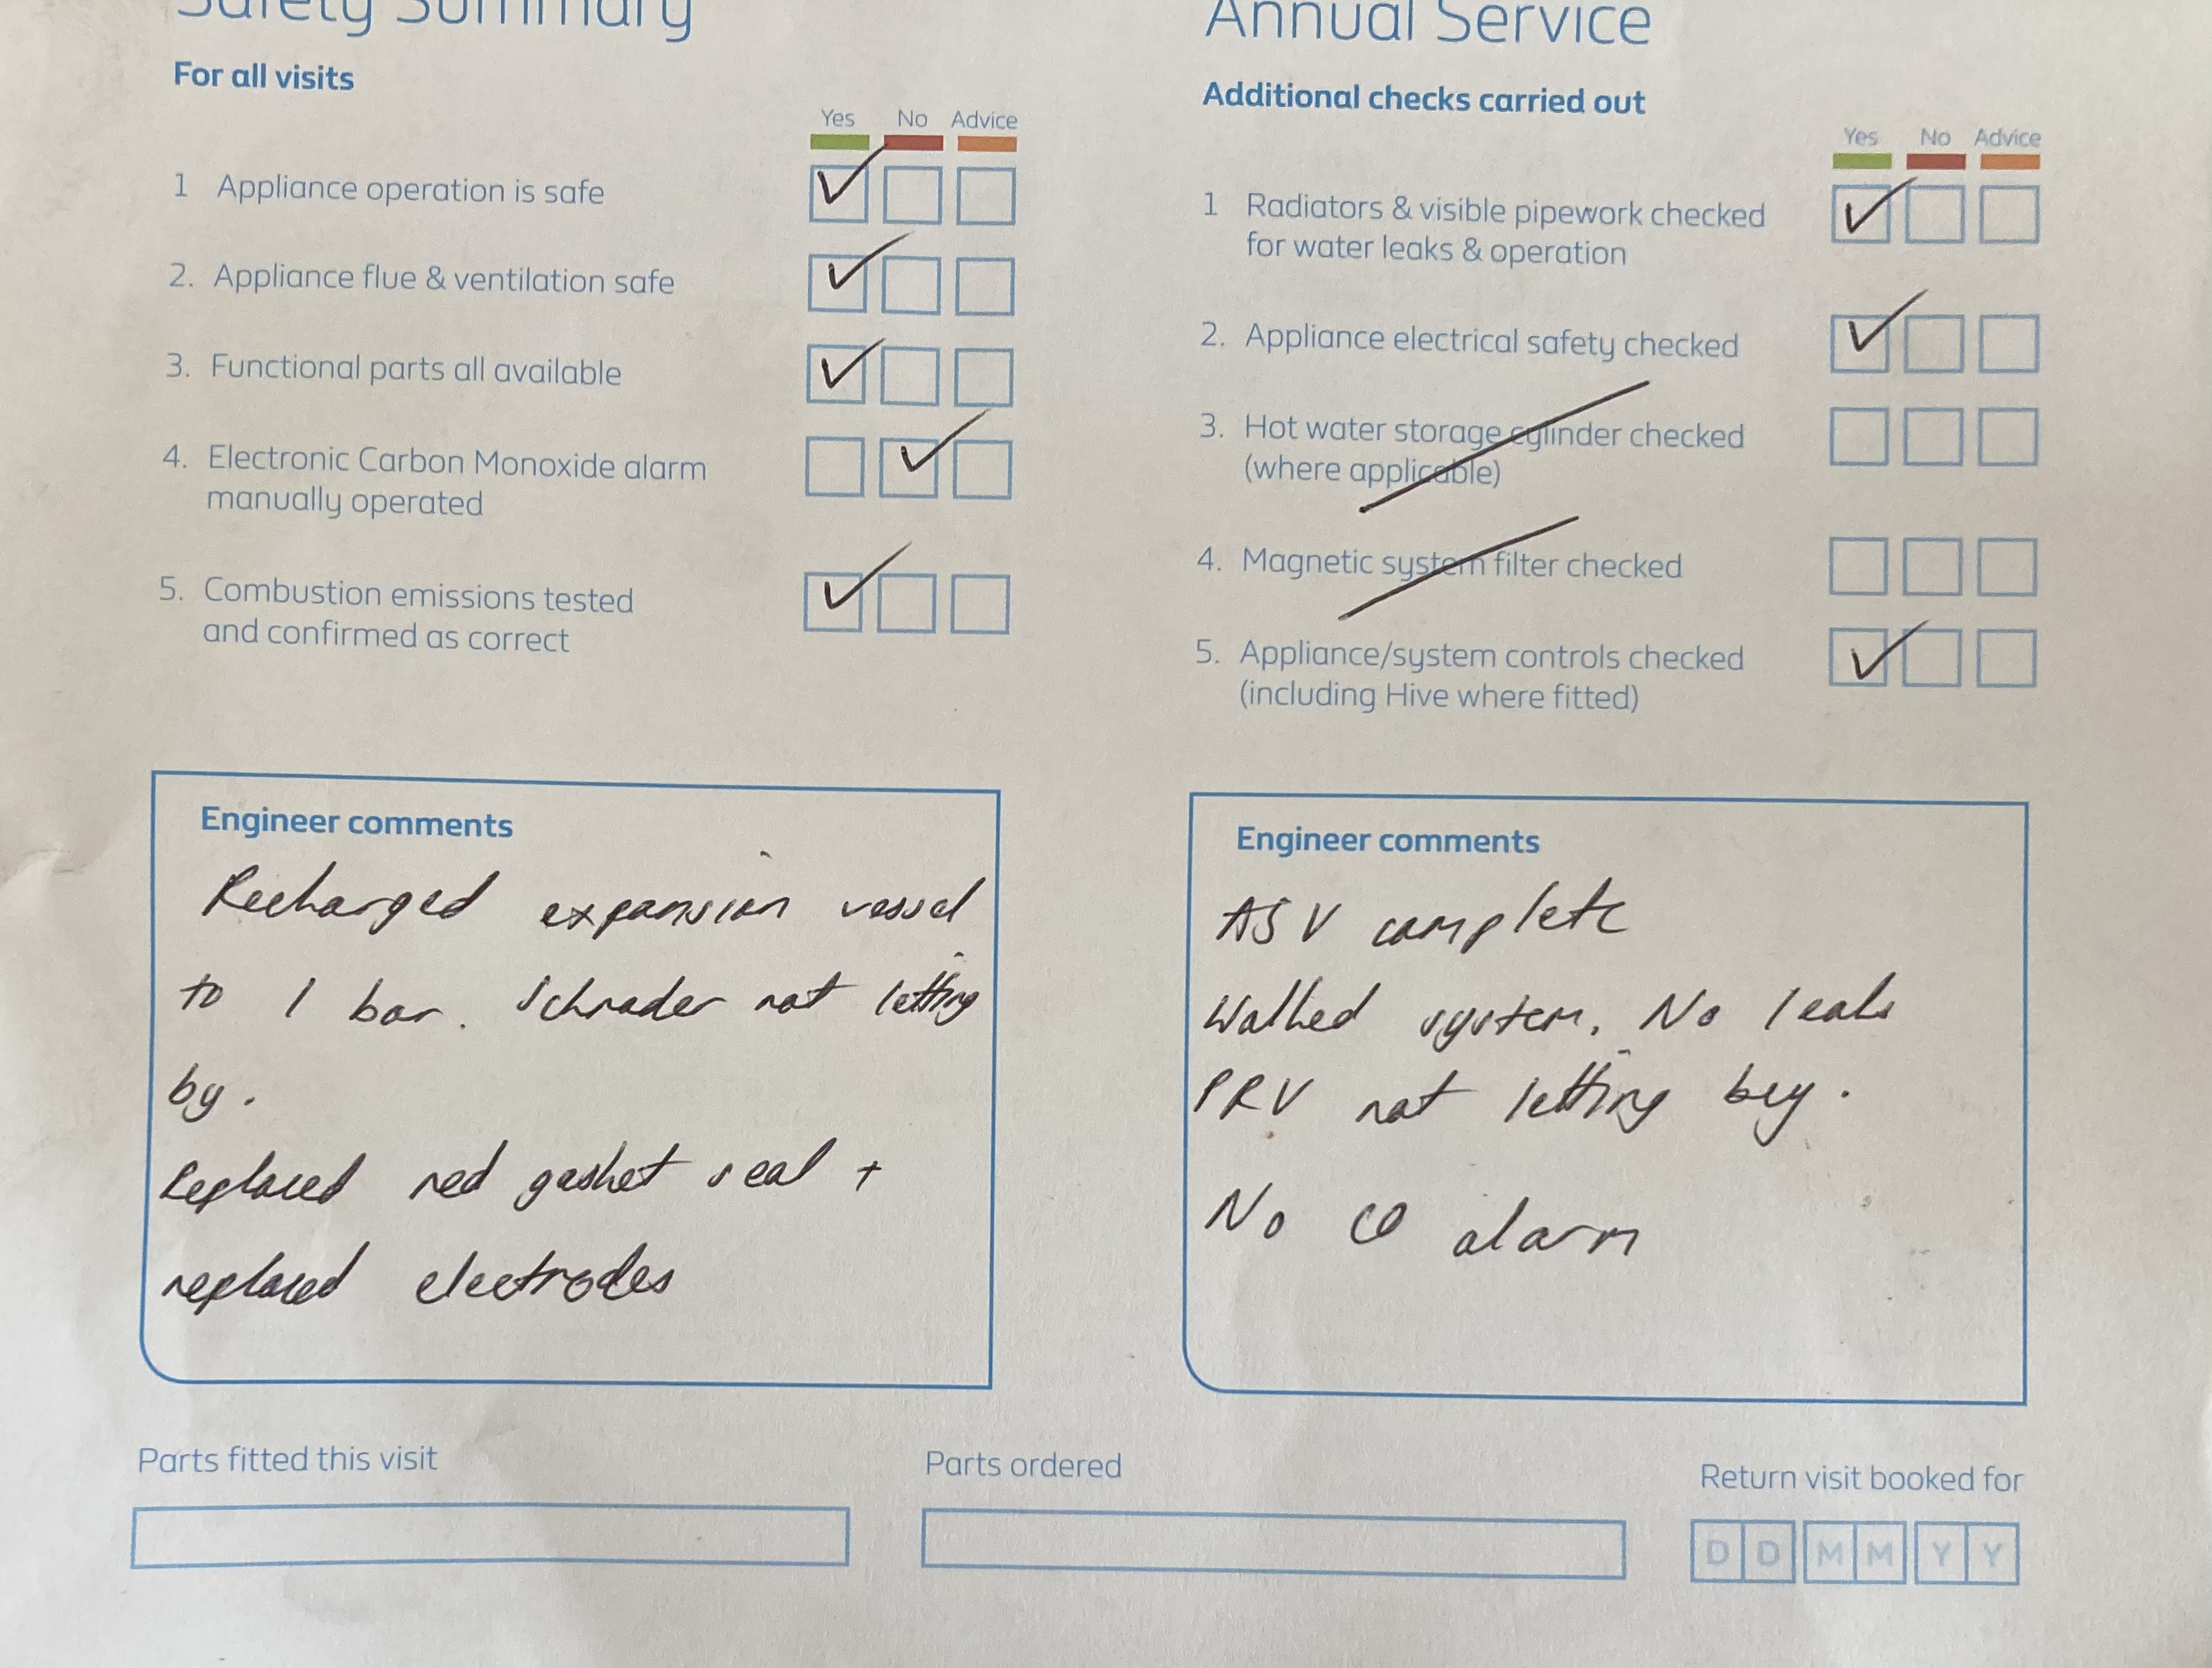 Safety Summary
For all visits
Yes No Advice
1 Appliance operation is safe
2. Appliance flue & ventilation safe
3. Functional parts all available
4. Electronic Carbon Monoxide alarm
manually operated
5. Combustion emissions tested
and confirmed as correct
Engineer comments
Recharged expansion vessel
to 1 bar. Schrader not letting
by.
Replaced red gasket seal +
replaced electrodes
Annual Service
Additional checks carried out
Yes No Advice
1 Radiators & visible pipework checked
for water leaks & operation
2. Appliance electrical safety checked
3. Hot water storage cylinder checked
(where applicable)
4. Magnetic system filter checked
5. Appliance/system controls checked
(including Hive where fitted)
Engineer comments
ASV complete
Walked system. No leaks
PRV not letting by.
No CO alarm
Parts fitted this visit
Parts ordered
Return visit booked for
D D M M Y Y